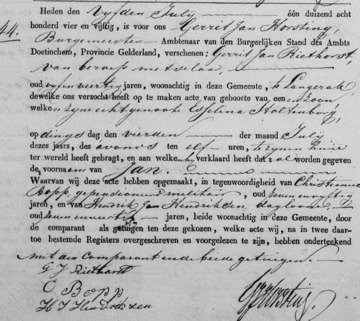 Heden den Vyfden July één duizend acht
44. honderd vier en vijftig, is voor ons Gerrit Jan Horsting,
Burgemeester Ambtenaar van den Burgerlijken Stand des Ambts
Doetinchem, Provincie Gelderland, verschenen; Gerrit Jan Riethorst
van beroep metselaar,
oud jaren, woonachtig in deze Gemeente, te Langerak
dewelke ons verzocht heeft op te maken acte van geboorte, van een zoon
welke zyne echtgenoot Holtenborg,
op dings dag den vierden der maand July
dezes jaars, des avonds ten elf uren, te zynen huize
ter wereld heeft gebragt, en aan welke hy verklaard heeft dat zal worden gegeven
de voornaam van Jan.
Waarvan wij deze acte hebben opgemaakt, in tegenwoordigheid van Christiaan
Bopp gepensioneerd militair, oud
jaren, en van Hendrik Jan Hendriksen daglooner,
oud jaren, beide woonachtig in deze Gemeente, door
de comparant als getuigen ten deze gekozen, welke acte wij, na in twee daar-
toe bestemde Registers overgeschreven en voorgelezen te zijn, hebben onderteekend
met den Comparant en de beide getuigen.
G J Riethorst
C Bopp
H J Hendriksen
GJHorsting